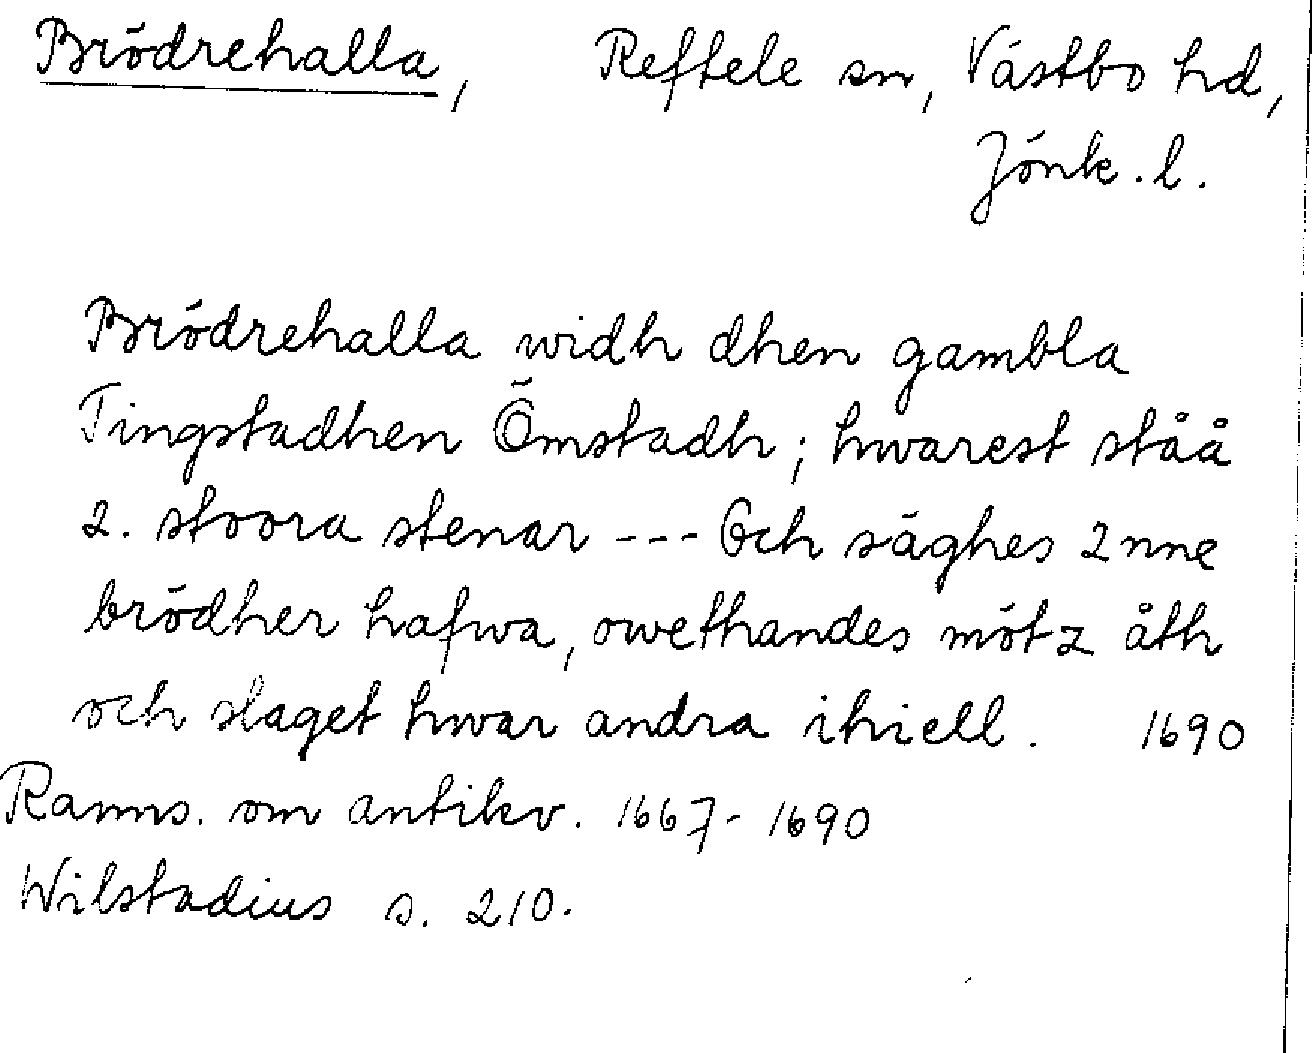 Brödrehalla, Reftele sn, Västbo hd,
Jönk. l.
Brödrehalla widh dhen gambla
Tingstadhen Ömstadh; hwarest ståå
2. stoora stenar --- Och säghes 2nne
brödher hafwa, owethandes mötz åth
och slaget hwar andra ihiell. 1690
Ranns. om antikv. 1667-1690
Wilstadius s. 210.